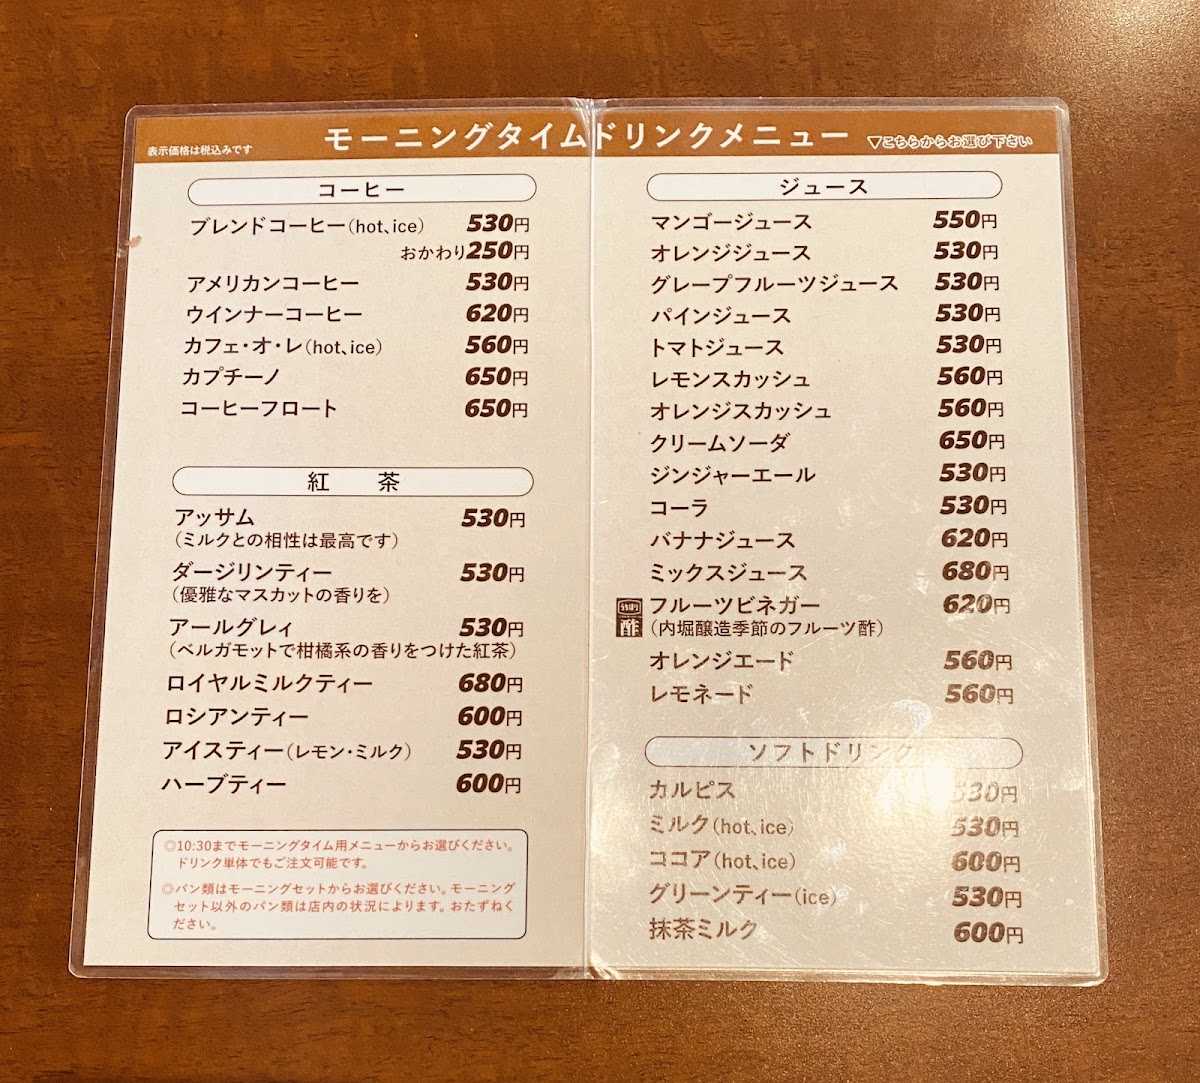 モーニングタイムドリンクメニュー
表示価格は税込みです
▽こちらからお選び下さい
コーヒー
ブレンドコーヒー(hot、ice) 530円
おかわり250円
アメリカンコーヒー 530円
ウインナーコーヒー 620円
カフェ・オ・レ(hot、ice) 560円
カプチーノ 650円
コーヒーフロート 650円
紅 茶
アッサム 530円
(ミルクとの相性は最高です)
ダージリンティー 530円
(優雅なマスカットの香りを)
アールグレィ 530円
(ベルガモットで柑橘系の香りをつけた紅茶)
ロイヤルミルクティー 680円
ロシアンティー 600円
アイスティー(レモン・ミルク) 530円
ハーブティー 600円
◎10:30までモーニングタイム用メニューからお選びください。
ドリンク単体でもご注文可能です。
◎パン類はモーニングセットからお選びください。モーニング
セット以外のパン類は店内の状況によります。おたずねく
ださい。
ジュース
マンゴージュース 550円
オレンジジュース 530円
グレープフルーツジュース 530円
パインジュース 530円
トマトジュース 530円
レモンスカッシュ 560円
オレンジスカッシュ 560円
クリームソーダ 650円
ジンジャーエール 530円
コーラ 530円
バナナジュース 620円
ミックスジュース 680円
うちぼり
酢
フルーツビネガー 620円
(内堀醸造季節のフルーツ酢)
オレンジエード 560円
レモネード 560円
ソフトドリンク
カルピス 530円
ミルク(hot、ice) 530円
ココア(hot、ice) 600円
グリーンティー(ice) 530円
抹茶ミルク 600円